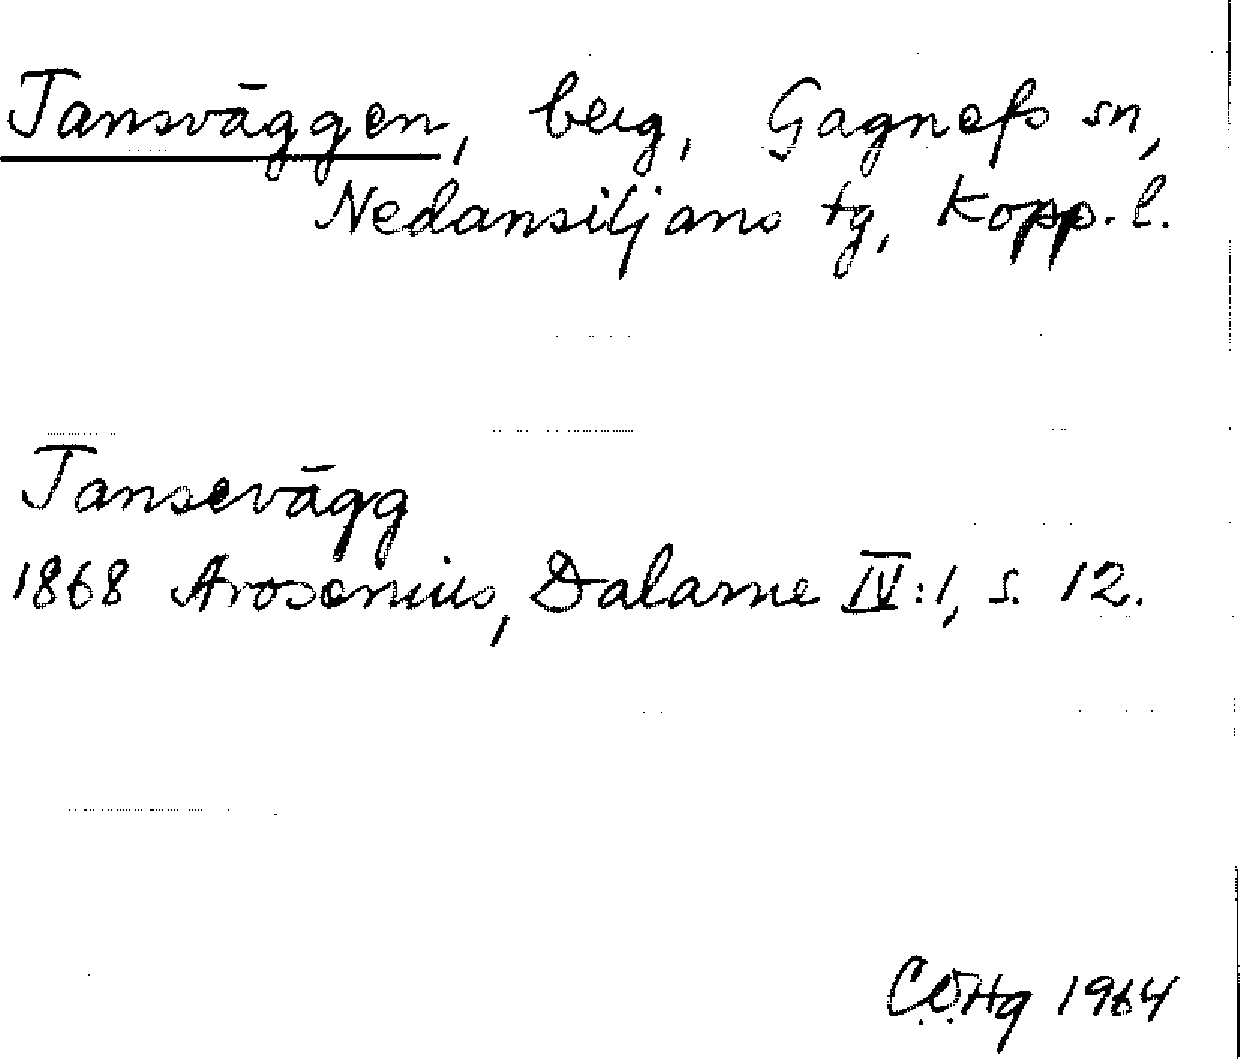 Jansväggen, berg, Gagnefs sn,
Nedansiljans tg, Kopp. l.
Jansevägg
1868 Arosenius, Dalarne IV:1, s. 12.
C.O.Hg 1964